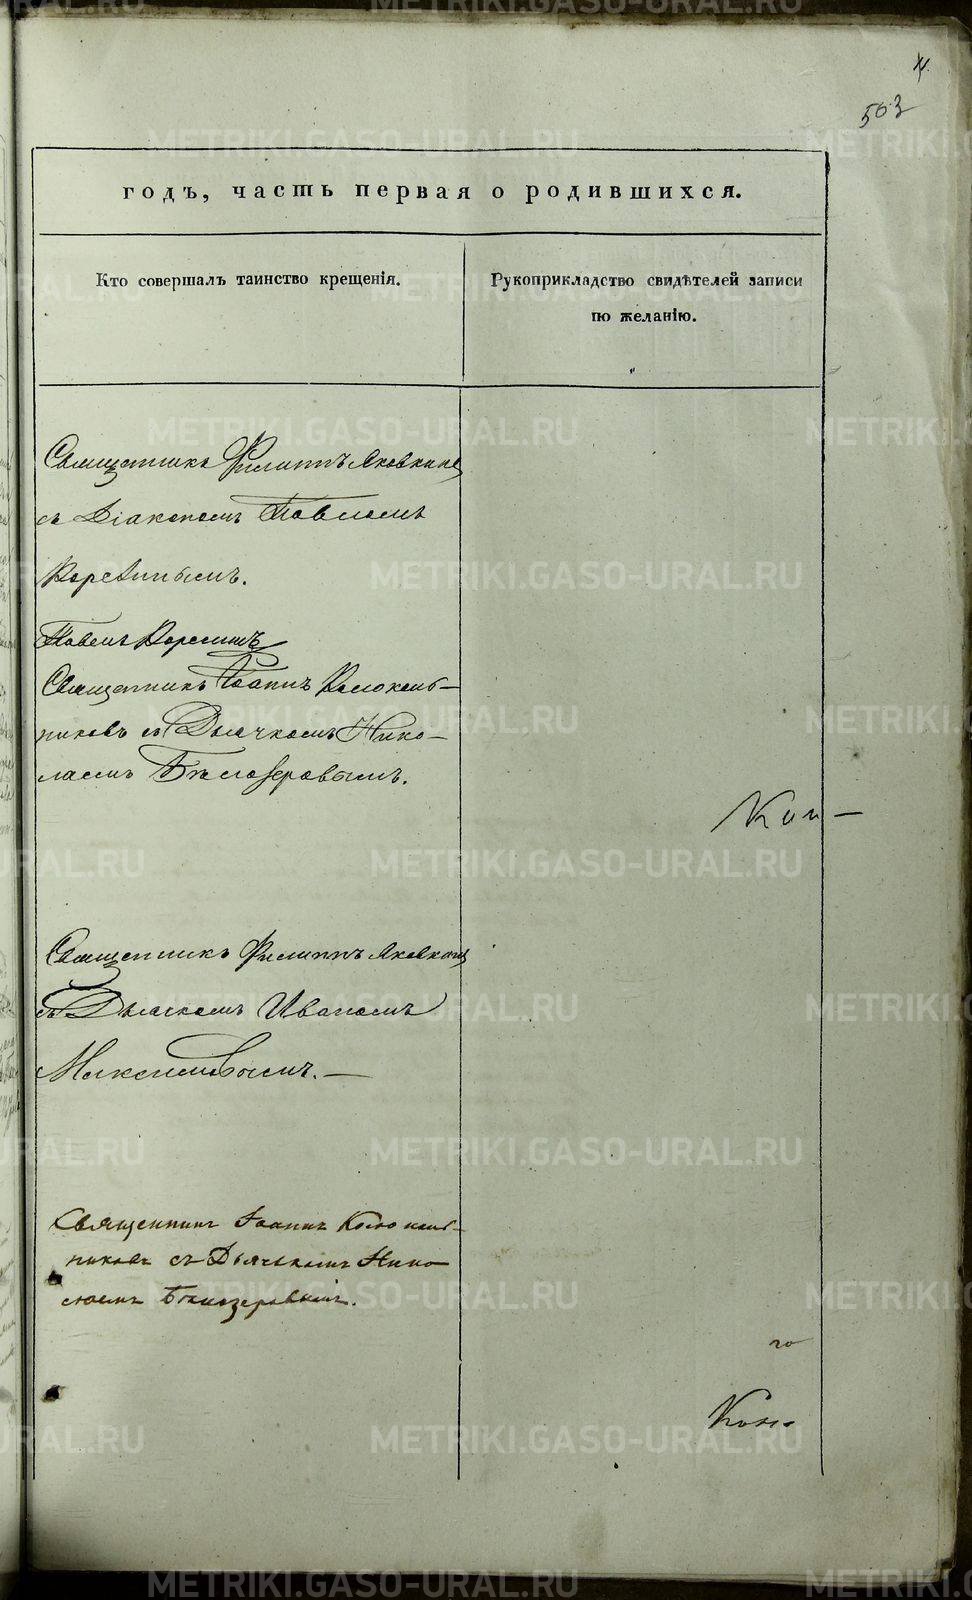 4
503
годъ, часть первая о родившихся.
Кто совершалъ таинство крещенія.
Рукоприкладство свидѣтелей записи
по желанію.
Священникъ Филиппъ Яковкинъ
съ Діакономъ Павломъ
Павелъ
Священникъ Іоаннъ Колоколь-
никовъ съ Дьячкомъ Нико-
лаемъ Бѣлозеровымъ.
Священникъ Филиппъ Яковкинъ
съ Дьячкомъ Иваномъ
Максимовымъ. —
Священникъ Іоаннъ Колоколь-
никовъ съ Дьячькомъ Нико-
лаемъ Бѣлозеровымъ.
го
METRIKI.GASO-URAL.RU